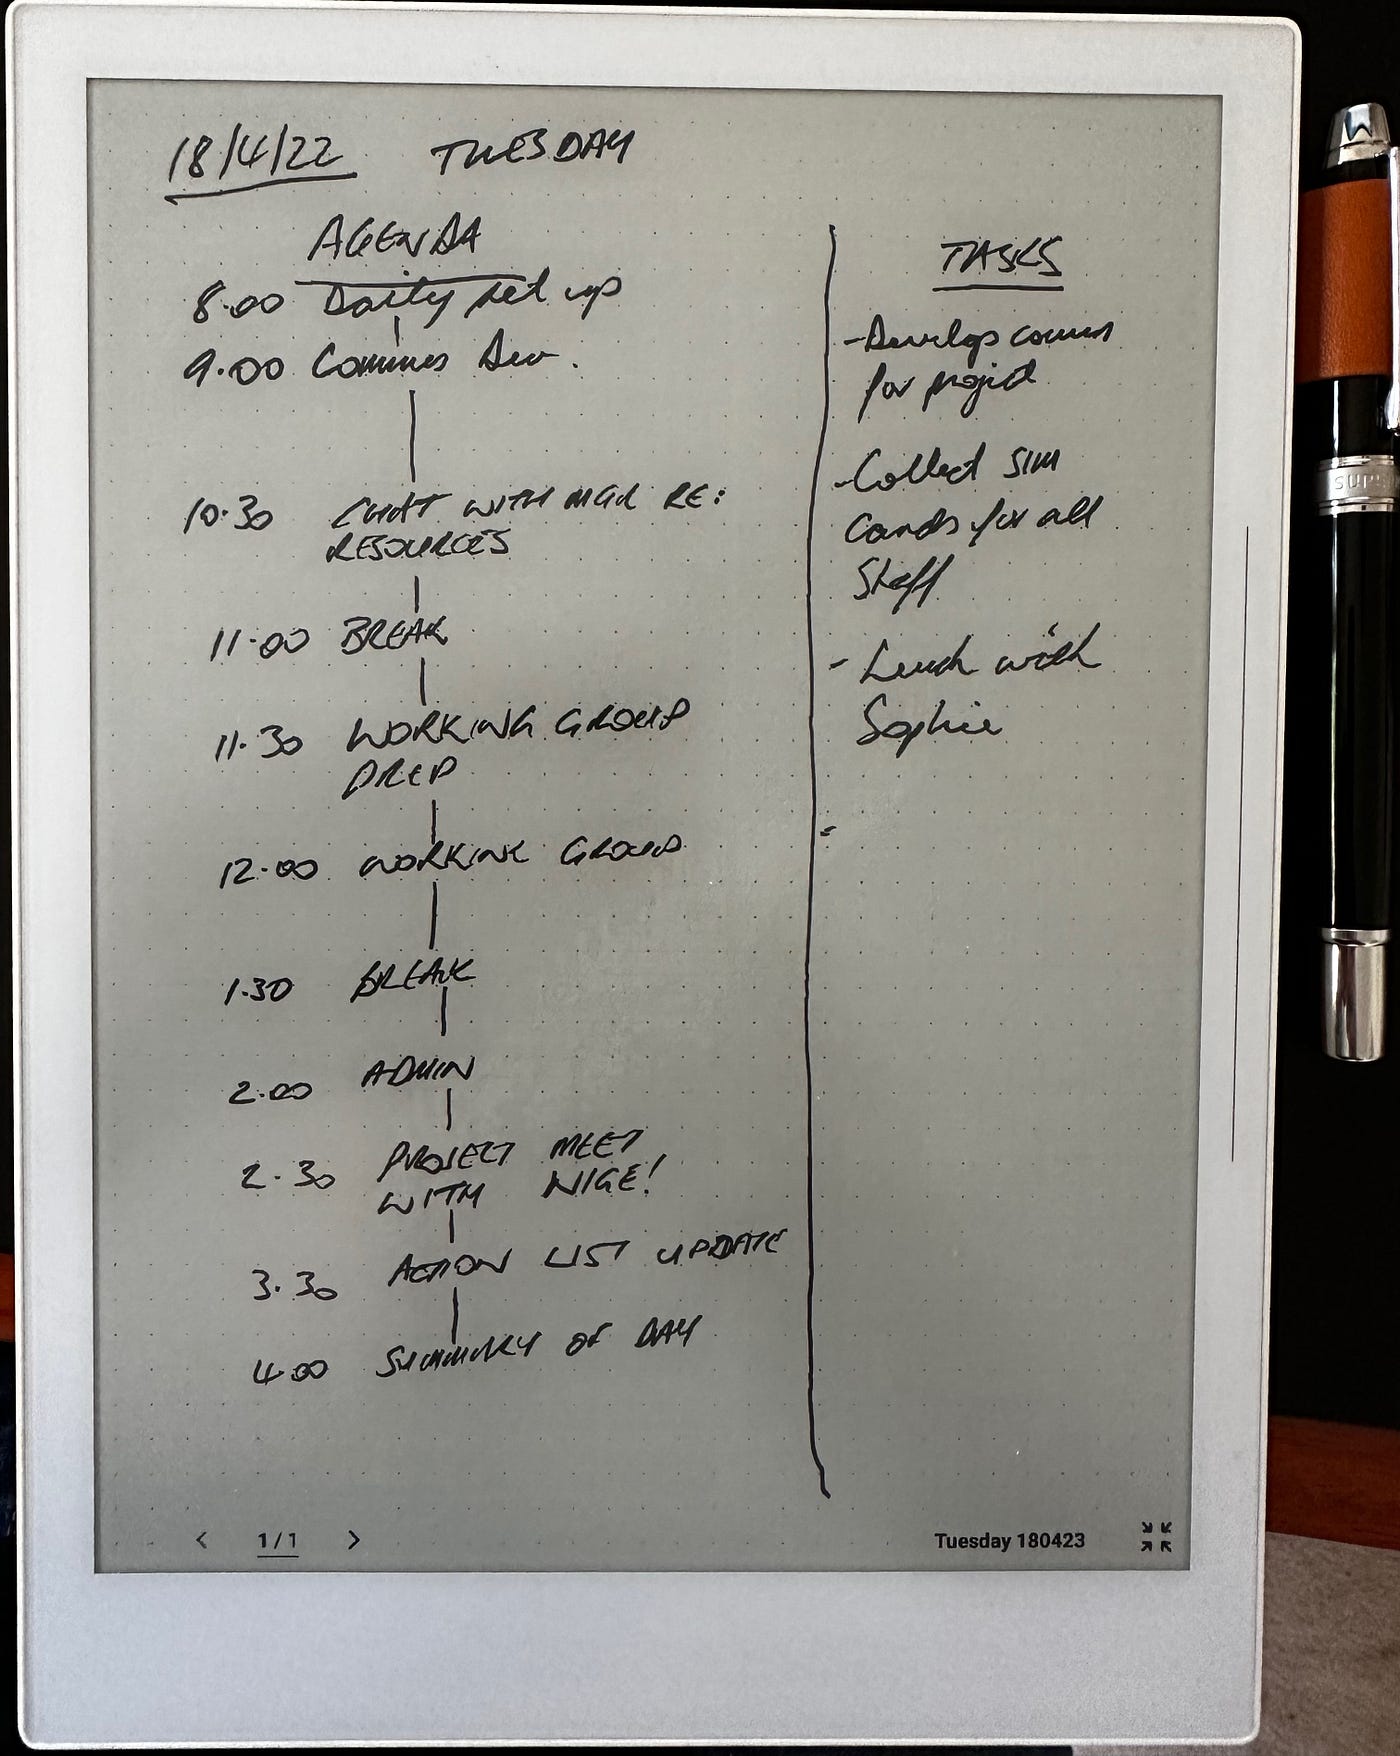 18/4/22 TUESDAY
AGENDA
8.00 Daily set up
9.00 Comms Dev.
10.30 CHAT WITH MGR RE:
RESOURCES
11.00 BREAK
11.30 WORKING GROUP
PREP
12.00 WORKING GROUP
1.30 BREAK
2.00 ADMIN
2.30 PROJECT MEET
WITH NIGE!
3.30 ACTION LIST UPDATE
4.00 SUMMARY OF DAY
TASKS
- Develop comms
for project
- Collect SIM
Cards for all
Staff
- Lunch with
Sophie
-
< 1/1 >
Tuesday 180423
SUP